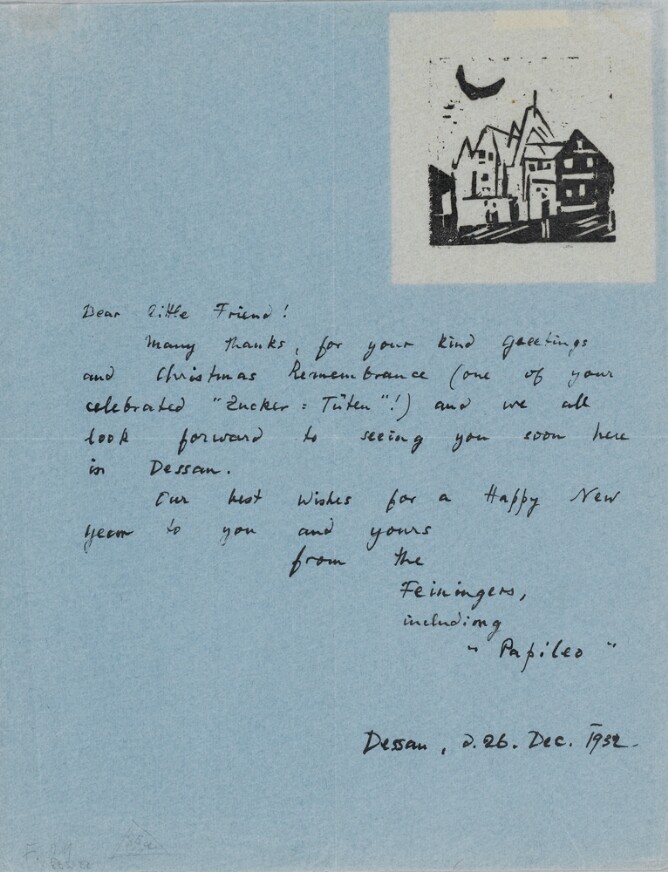 Dear little Friend!
Many thanks, for your kind greetings
and Christmas Remembrance (one of your
celebrated "Zucker = Tüten"!) and we all
look forward to seeing you soon here
in Dessau.
Our best wishes for a Happy New
year to you and yours
from the
Feiningers,
including
"Papileo"
Dessau, d. 26. Dec. 1932.